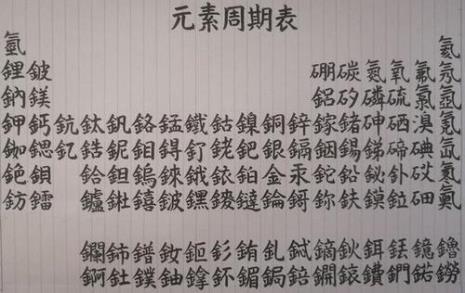 元素周期表
氫 氦
鋰鈹 硼碳氮氧氟氖
鈉鎂 鋁矽磷硫氯氬
鉀鈣鈧鈦釩鉻錳鐵鈷鎳銅鋅鎵鍺砷硒溴氪
銣鍶釔鋯鈮鉬鍀釕銠鈀銀鎘銦錫銻碲碘氙
銫鋇 鉿鉭鎢錸鋨銥鉑金汞鉈鉛鉍釙砹氡
鈁鐳 鑪𨧀𨭎𨨏𨭆䥑鐽錀鎶鉨鈇鏌鉝鿬鿫
鑭鈰鐠釹鉕釤銪釓鋱鏑鈥鉺銩鐿鑥
錒釷鏷鈾鎿鈈鎇鋦錇鐦鎄鐨鍆鍩鐒